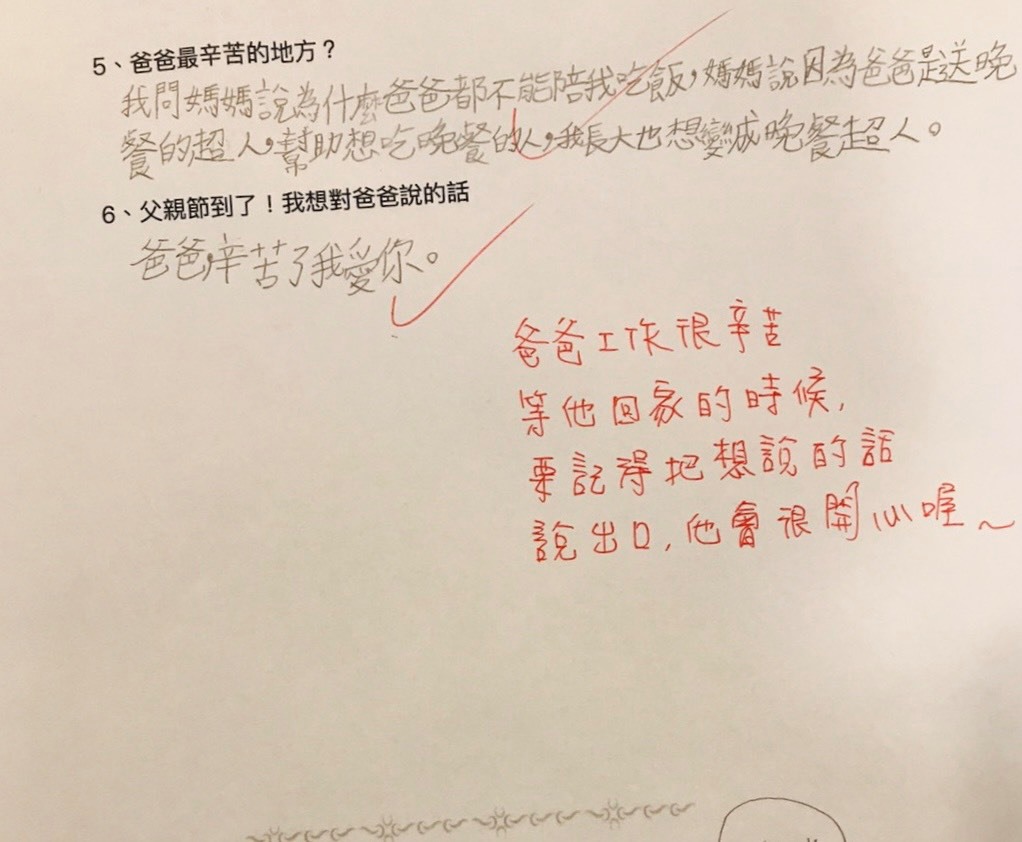 5、爸爸最辛苦的地方？
我問媽媽說為什麼爸爸都不能陪我吃飯，媽媽說因為爸爸是送晚
餐的超人，幫助想吃晚餐的人，我長大也想變成晚餐超人。
6、父親節到了！我想對爸爸說的話
爸爸，辛苦了我愛你。
爸爸工作很辛苦
等他回家的時候，
要記得把想說的話
說出口，他會很開心喔～